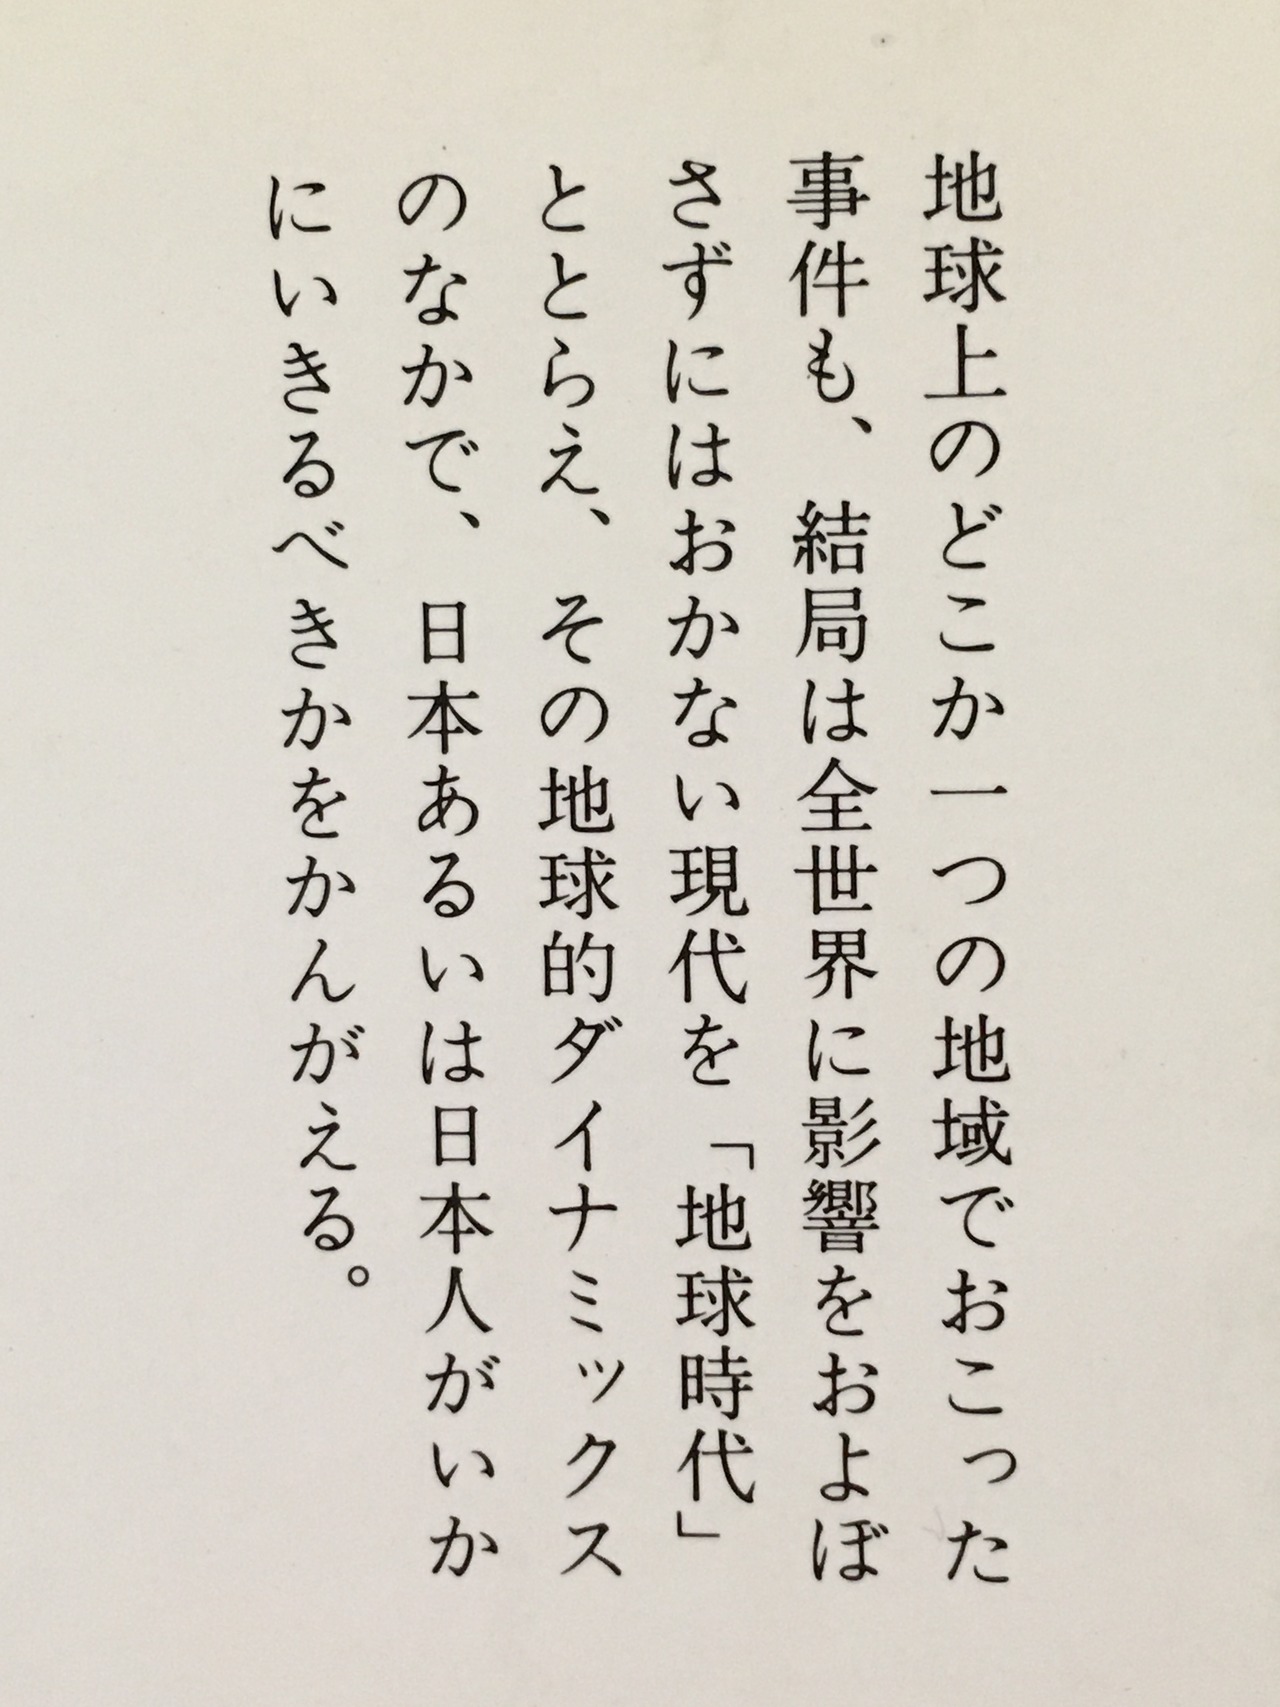 地球上のどこか一つの地域でおこった
事件も、結局は全世界に影響をおよぼ
さずにはおかない現代を「地球時代」
ととらえ、その地球的ダイナミックス
のなかで、日本あるいは日本人がいか
にいきるべきかをかんがえる。